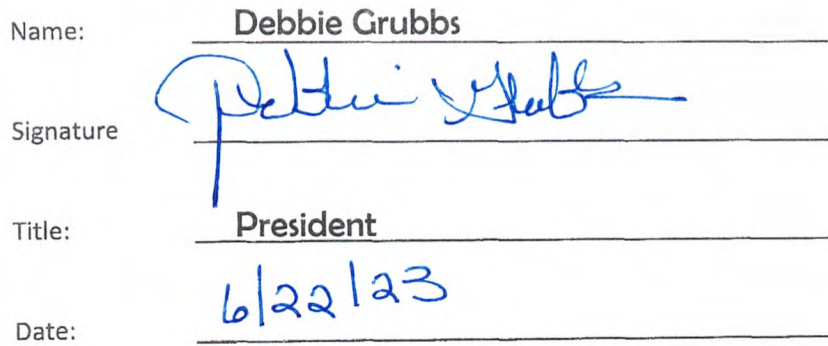 Name: Debbie Grubbs
Signature Debbie Grubbs
Title: President
Date: 6/22/23